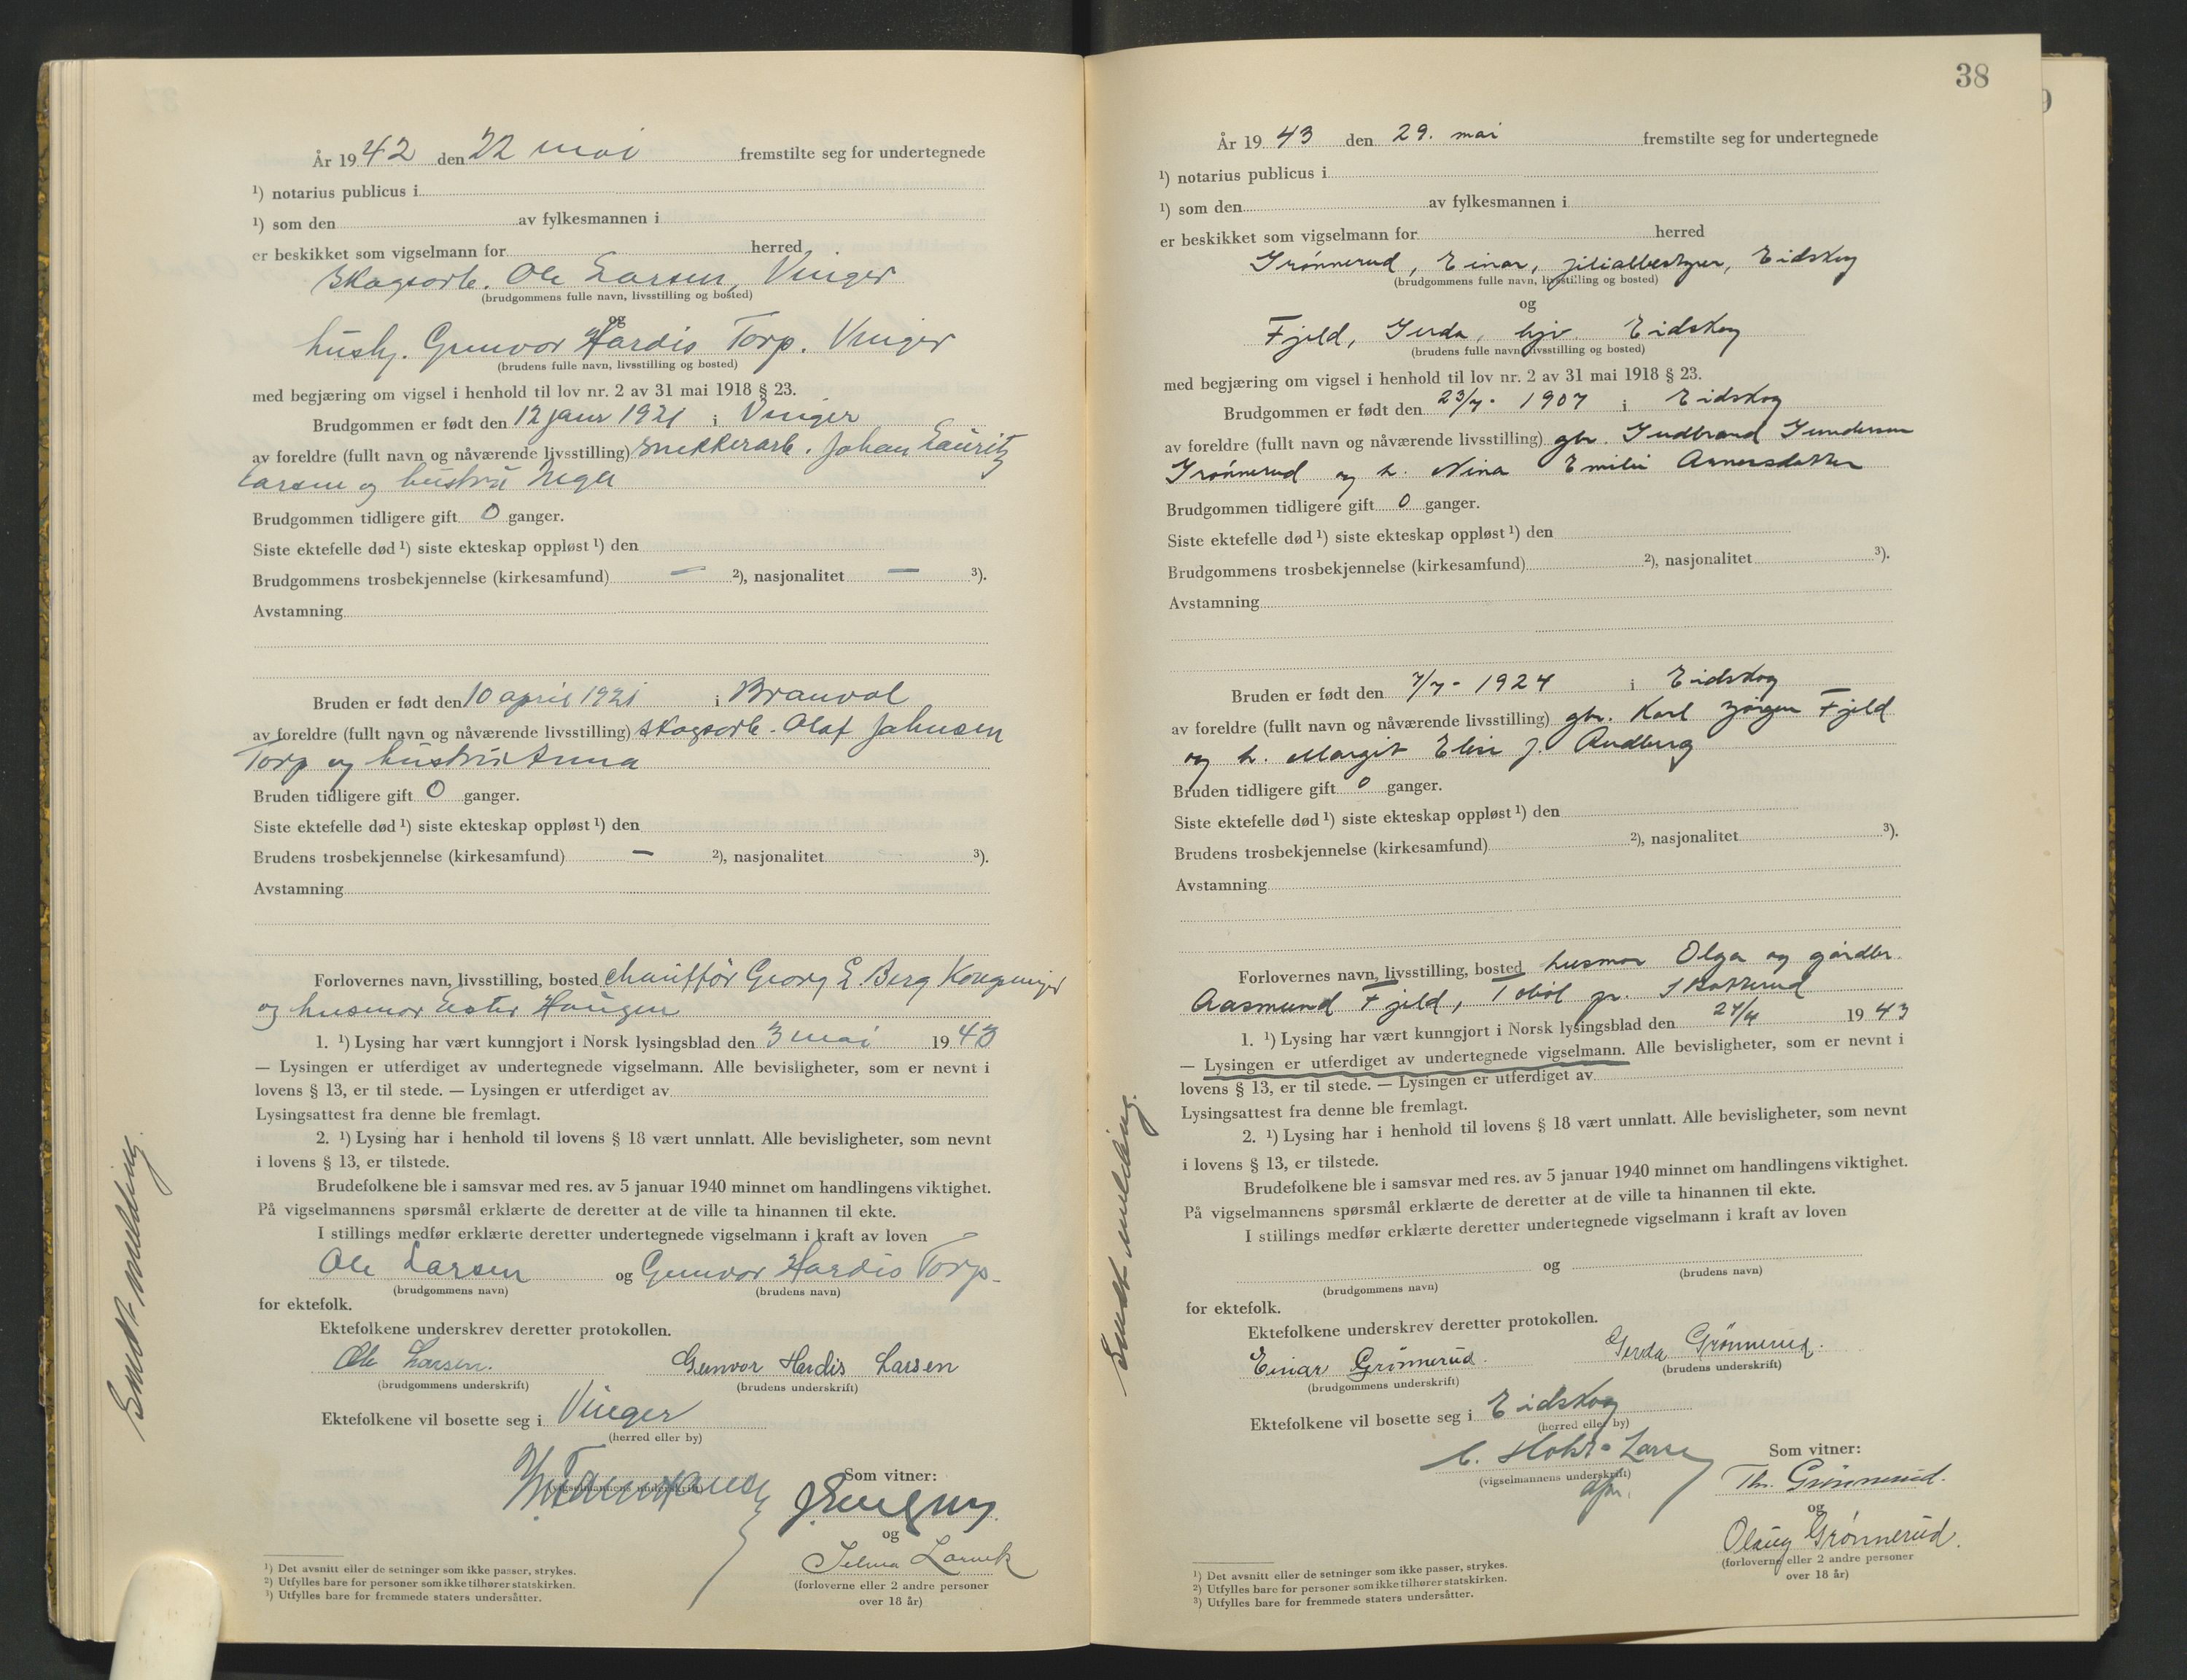 År 1942 den 22 mai fremstilte seg for undertegnede
¹) notarius publicus i
¹) som den av fylkesmannen i
er beskikket som vigselmann for herred
Skogsarb. Ole Larsen, Vinger
(brudgommens fulle navn, livsstilling og bosted)
og
hushj. Gunvor Hardis Torp. Vinger
(brudens fulle navn, livsstilling og bosted)
med begjæring om vigsel i henhold til lov nr. 2 av 31 mai 1918 § 23.
Brudgommen er født den 12 janr 1921 i Vinger
av foreldre (fullt navn og nåværende livsstilling) snekkerarb. Johan Lauritz
Larsen og hustru Inga
Brudgommen tidligere gift 0 ganger.
Siste ektefelle død ¹) siste ekteskap oppløst ¹) den
Brudgommens trosbekjennelse (kirkesamfund) — ²), nasjonalitet — ³).
Avstamning
Bruden er født den 10 april 1921 i Branval
av foreldre (fullt navn og nåværende livsstilling) skogsarb. Olaf Johnsen
Torp og hustru Anna
Bruden tidligere gift 0 ganger.
Siste ektefelle død ¹) siste ekteskap oppløst ¹) den
Brudens trosbekjennelse (kirkesamfund) — ²), nasjonalitet ³).
Avstamning
Forlovernes navn, livsstilling, bosted chauffør Georg E Berg Kongsvinger
og husmor Ester Haugen
1. ¹) Lysing har vært kunngjort i Norsk lysingsblad den 3 mai 1943
— Lysingen er utferdiget av undertegnede vigselmann. Alle bevisligheter, som er nevnt i
lovens § 13, er til stede. — Lysingen er utferdiget av
Lysingsattest fra denne ble fremlagt.
2. ¹) Lysing har i henhold til lovens § 18 vært unnlatt. Alle bevisligheter, som nevnt
i lovens § 13, er tilstede.
Brudefolkene ble i samsvar med res. av 5 januar 1940 minnet om handlingens viktighet.
På vigselmannens spørsmål erklærte de deretter at de ville ta hinannen til ekte.
I stillings medfør erklærte deretter undertegnede vigselmann i kraft av loven
Ole Larsen og Gunvor Hardis Torp
(brudgommens navn) (brudens navn)
for ektefolk.
Ektefolkene underskrev deretter protokollen.
Ole Larsen. Gunvor Herdis Larsen
(brudgommens underskrift) (brudens underskrift)
Ektefolkene vil bosette seg i Vinger
(herred eller by)
(vigselmannens underskrift)
Som vitner:
og
Selma Larvik
(forloverne eller 2 andre personer
over 18 år)
¹) Det avsnitt eller de setninger som ikke passer, strykes.
²) Utfylles bare for personer som ikke tilhører statskirken.
³) Utfylles bare for fremmede staters undersåtter.
Sendt melding.
38
År 1943 den 29. mai fremstilte seg for undertegnede
¹) notarius publicus i
¹) som den av fylkesmannen i
er beskikket som vigselmann for herred
Grønnerud, Einar, filialbestyrer, Eidskog
(brudgommens fulle navn, livsstilling og bosted)
og
Fjeld, Gerda, hjv. Eidskog
(brudens fulle navn, livsstilling og bosted)
med begjæring om vigsel i henhold til lov nr. 2 av 31 mai 1918 § 23.
Brudgommen er født den 23/7- 1907 i Eidskog
av foreldre (fullt navn og nåværende livsstilling) gbr. Gudbrand Gundersen
Grønnerud og h. Nina Emilie Arnesdatter
Brudgommen tidligere gift 0 ganger.
Siste ektefelle død ¹) siste ekteskap oppløst ¹) den
Brudgommens trosbekjennelse (kirkesamfund) ²), nasjonalitet ³).
Avstamning
Bruden er født den 7/7- 1924 i Eidskog
av foreldre (fullt navn og nåværende livsstilling) gbr. Karl Jørgen Fjeld
og h. Margit Elise f. Rudberg
Bruden tidligere gift 0 ganger.
Siste ektefelle død ¹) siste ekteskap oppløst ¹) den
Brudens trosbekjennelse (kirkesamfund) ²), nasjonalitet ³).
Avstamning
Forlovernes navn, livsstilling, bosted husmor Olga og gårdbr.
Aasmund Fjeld, Tobøl pr. Skotterud
1. ¹) Lysing har vært kunngjort i Norsk lysingsblad den 27/4 1943
— Lysingen er utferdiget av undertegnede vigselmann. Alle bevisligheter, som er nevnt i
lovens § 13, er til stede. — Lysingen er utferdiget av
Lysingsattest fra denne ble fremlagt.
2. ¹) Lysing har i henhold til lovens § 18 vært unnlatt. Alle bevisligheter, som nevnt
i lovens § 13, er tilstede.
Brudefolkene ble i samsvar med res. av 5 januar 1940 minnet om handlingens viktighet.
På vigselmannens spørsmål erklærte de deretter at de ville ta hinannen til ekte.
I stillings medfør erklærte deretter undertegnede vigselmann i kraft av loven
og
(brudgommens navn) (brudens navn)
for ektefolk.
Ektefolkene underskrev deretter protokollen.
Einar Grönnerud. Gerda Grönnerud.
(brudgommens underskrift) (brudens underskrift)
Ektefolkene vil bosette seg i Eidskog
(herred eller by)
C. Holst-Larsen
(vigselmannens underskrift)
Som vitner:
Th. Grönnerud.
og
Olaug Grønnerud.
(forloverne eller 2 andre personer
over 18 år)
¹) Det avsnitt eller de setninger som ikke passer, strykes.
²) Utfylles bare for personer som ikke tilhører statskirken.
³) Utfylles bare for fremmede staters undersåtter.
Sendt melding.